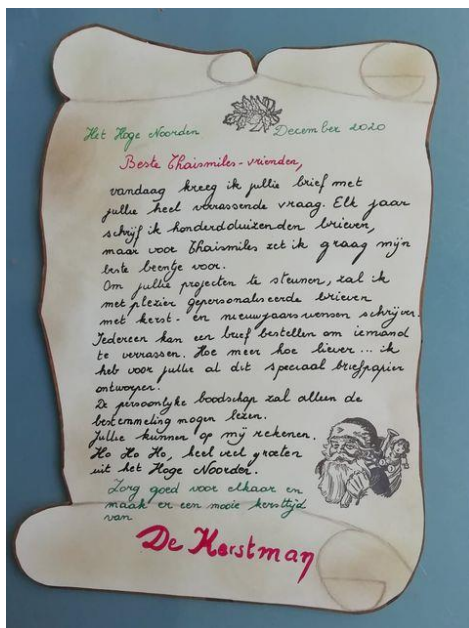 Het Hoge Noorden December 2020
Beste Thaismiles-vrienden,
vandaag kreeg ik jullie brief met
jullie heel verrassende vraag. Elk jaar
schrijf ik honderdduizenden brieven,
maar voor Thaismiles zet ik graag mijn
beste beentje voor.
Om jullie projecten te steunen, zal ik
met plezier gepersonaliseerde brieven
met kerst- en nieuwjaarswensen schrijven.
Iedereen kan een brief bestellen om iemand
te verrassen. Hoe meer hoe liever... ik
heb voor jullie al dit speciaal briefpapier
ontworpen.
De persoonlijke boodschap zal alleen de
bestemmeling mogen lezen.
Jullie kunnen op mij rekenen.
Ho Ho Ho, heel veel groeten
uit het Hoge Noorden.
Zorg goed voor elkaar en
maak er een mooie kersttijd
van
De Kerstman